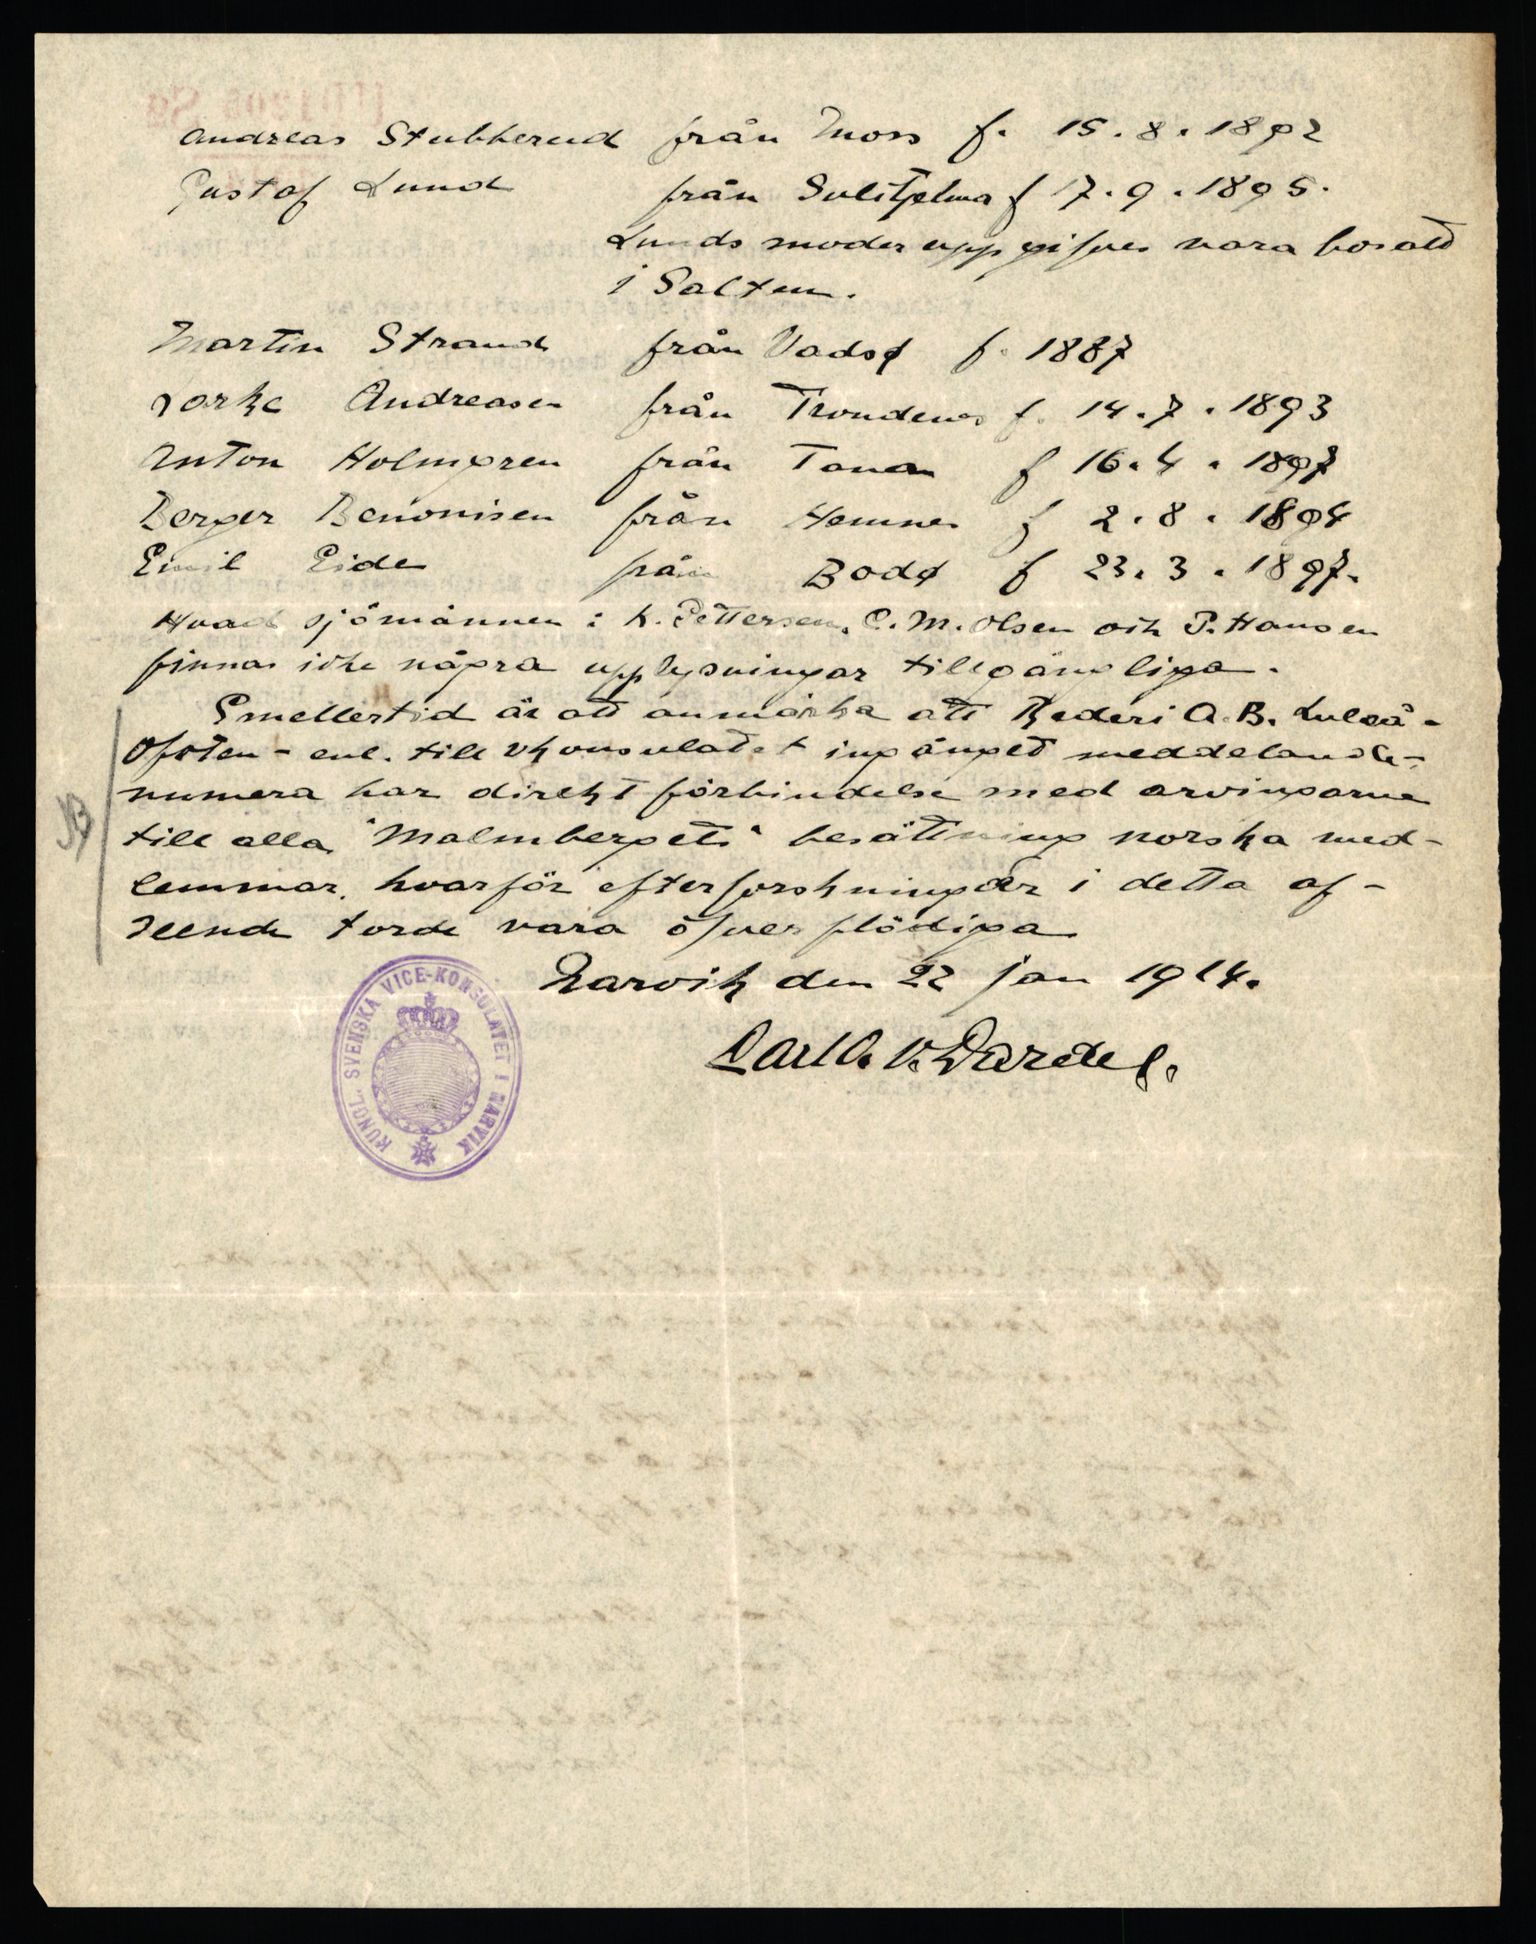 Andreas Stubberud från Moss f. 15.8.1892
Gustaf Lund från Sulitjelma f 17.9.1895.
Lunds moder uppgifves vara bosatt
i Salten.
Martin Strand från Vadsø f. 1887
Andreasen från Trondenes f. 14.7.1893
Anton Holmgren från Tanan f 16.4.1897
Berger Benonisen från Hemnes f 2.8.1894
Emil Eide från Bodø f 23.3.1897.
Hvad sjömännen: K. Pettersen, C. M. Olsen och P. Hansen
finnas icke några upplysningar tillgängliga.
Emellertid är att anmärka att Rederi A.B. Luleå-
Ofoten - enl. till vkonsulatet ingånget meddelande -
numera har direkt förbindelse med arvingarne
till alla "Malmbergets" besättning norska med-
lemmar, hvarför efterforskningar i detta af-
seende torde vara öfverflödiga
Narvik den 22 jan 1914.
Carl O. v. Dardel.
KUNGL. SVENSKA VICE-KONSULATET I NARVIK
NB